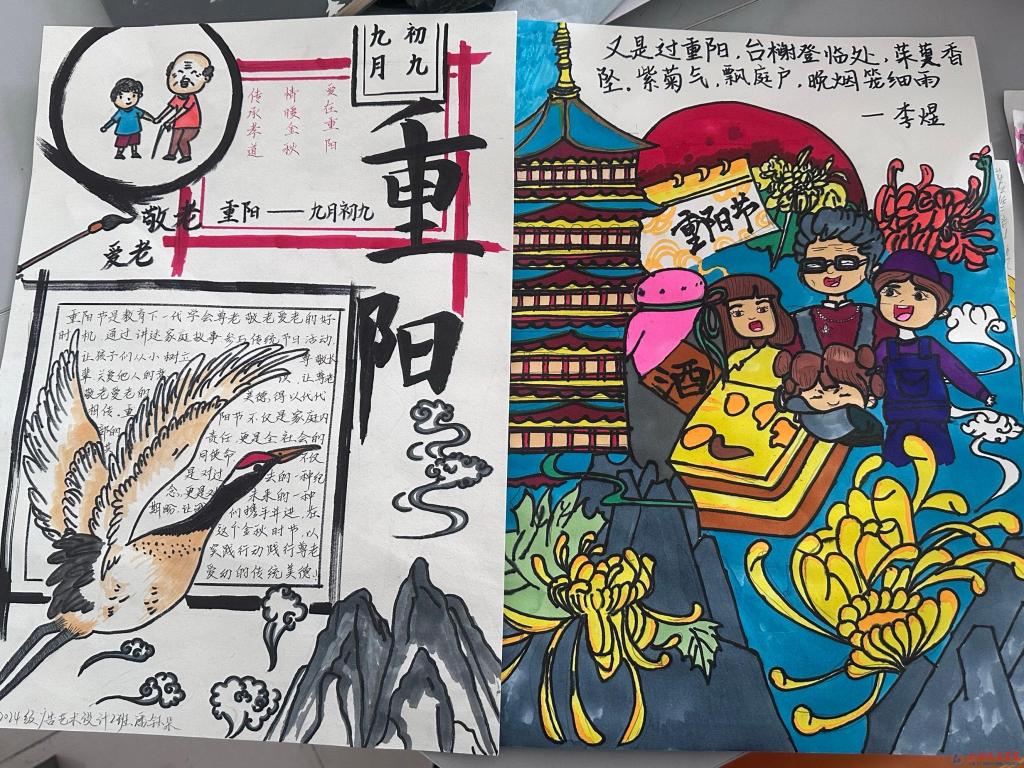 九月
初九
重阳
爱在重阳
情暖金秋
传承孝道
重阳——九月初九
敬老
爱老
重阳节是教育下一代学会尊老敬老爱老的好
时机,通过讲述家庭故事、参与传统节日活动,
让孩子们从小树立
尊敬长
辈关爱他人的
让尊老
敬老爱老的
美德,得以代代
相传。重
阳节不仅是家庭内
部的
责任,更是全社会的
同使命
不仅
是对过
去的一种纪
念,更是对
未来的一种
期盼。让我
们携手并进,在
这个金秋时节,以
实践行动践行尊老
爱幼的传统美德。
2024级广告艺术设计2班
又是过重阳,台榭登临处,茱萸香
坠。紫菊气,飘庭户,晚烟笼细雨
—李煜
重阳节
酒